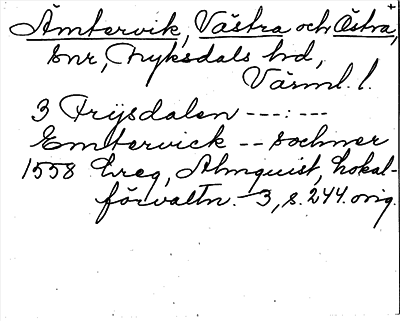 Ämtervik, Västra och Östra,
snr, Fryksdals hd,
Värml. l.
3 Frysdalen ---:---
Emtervick -- sochner
1558 hreg, Almquist, Lokal-
förvaltn. 3, s. 244. orig.